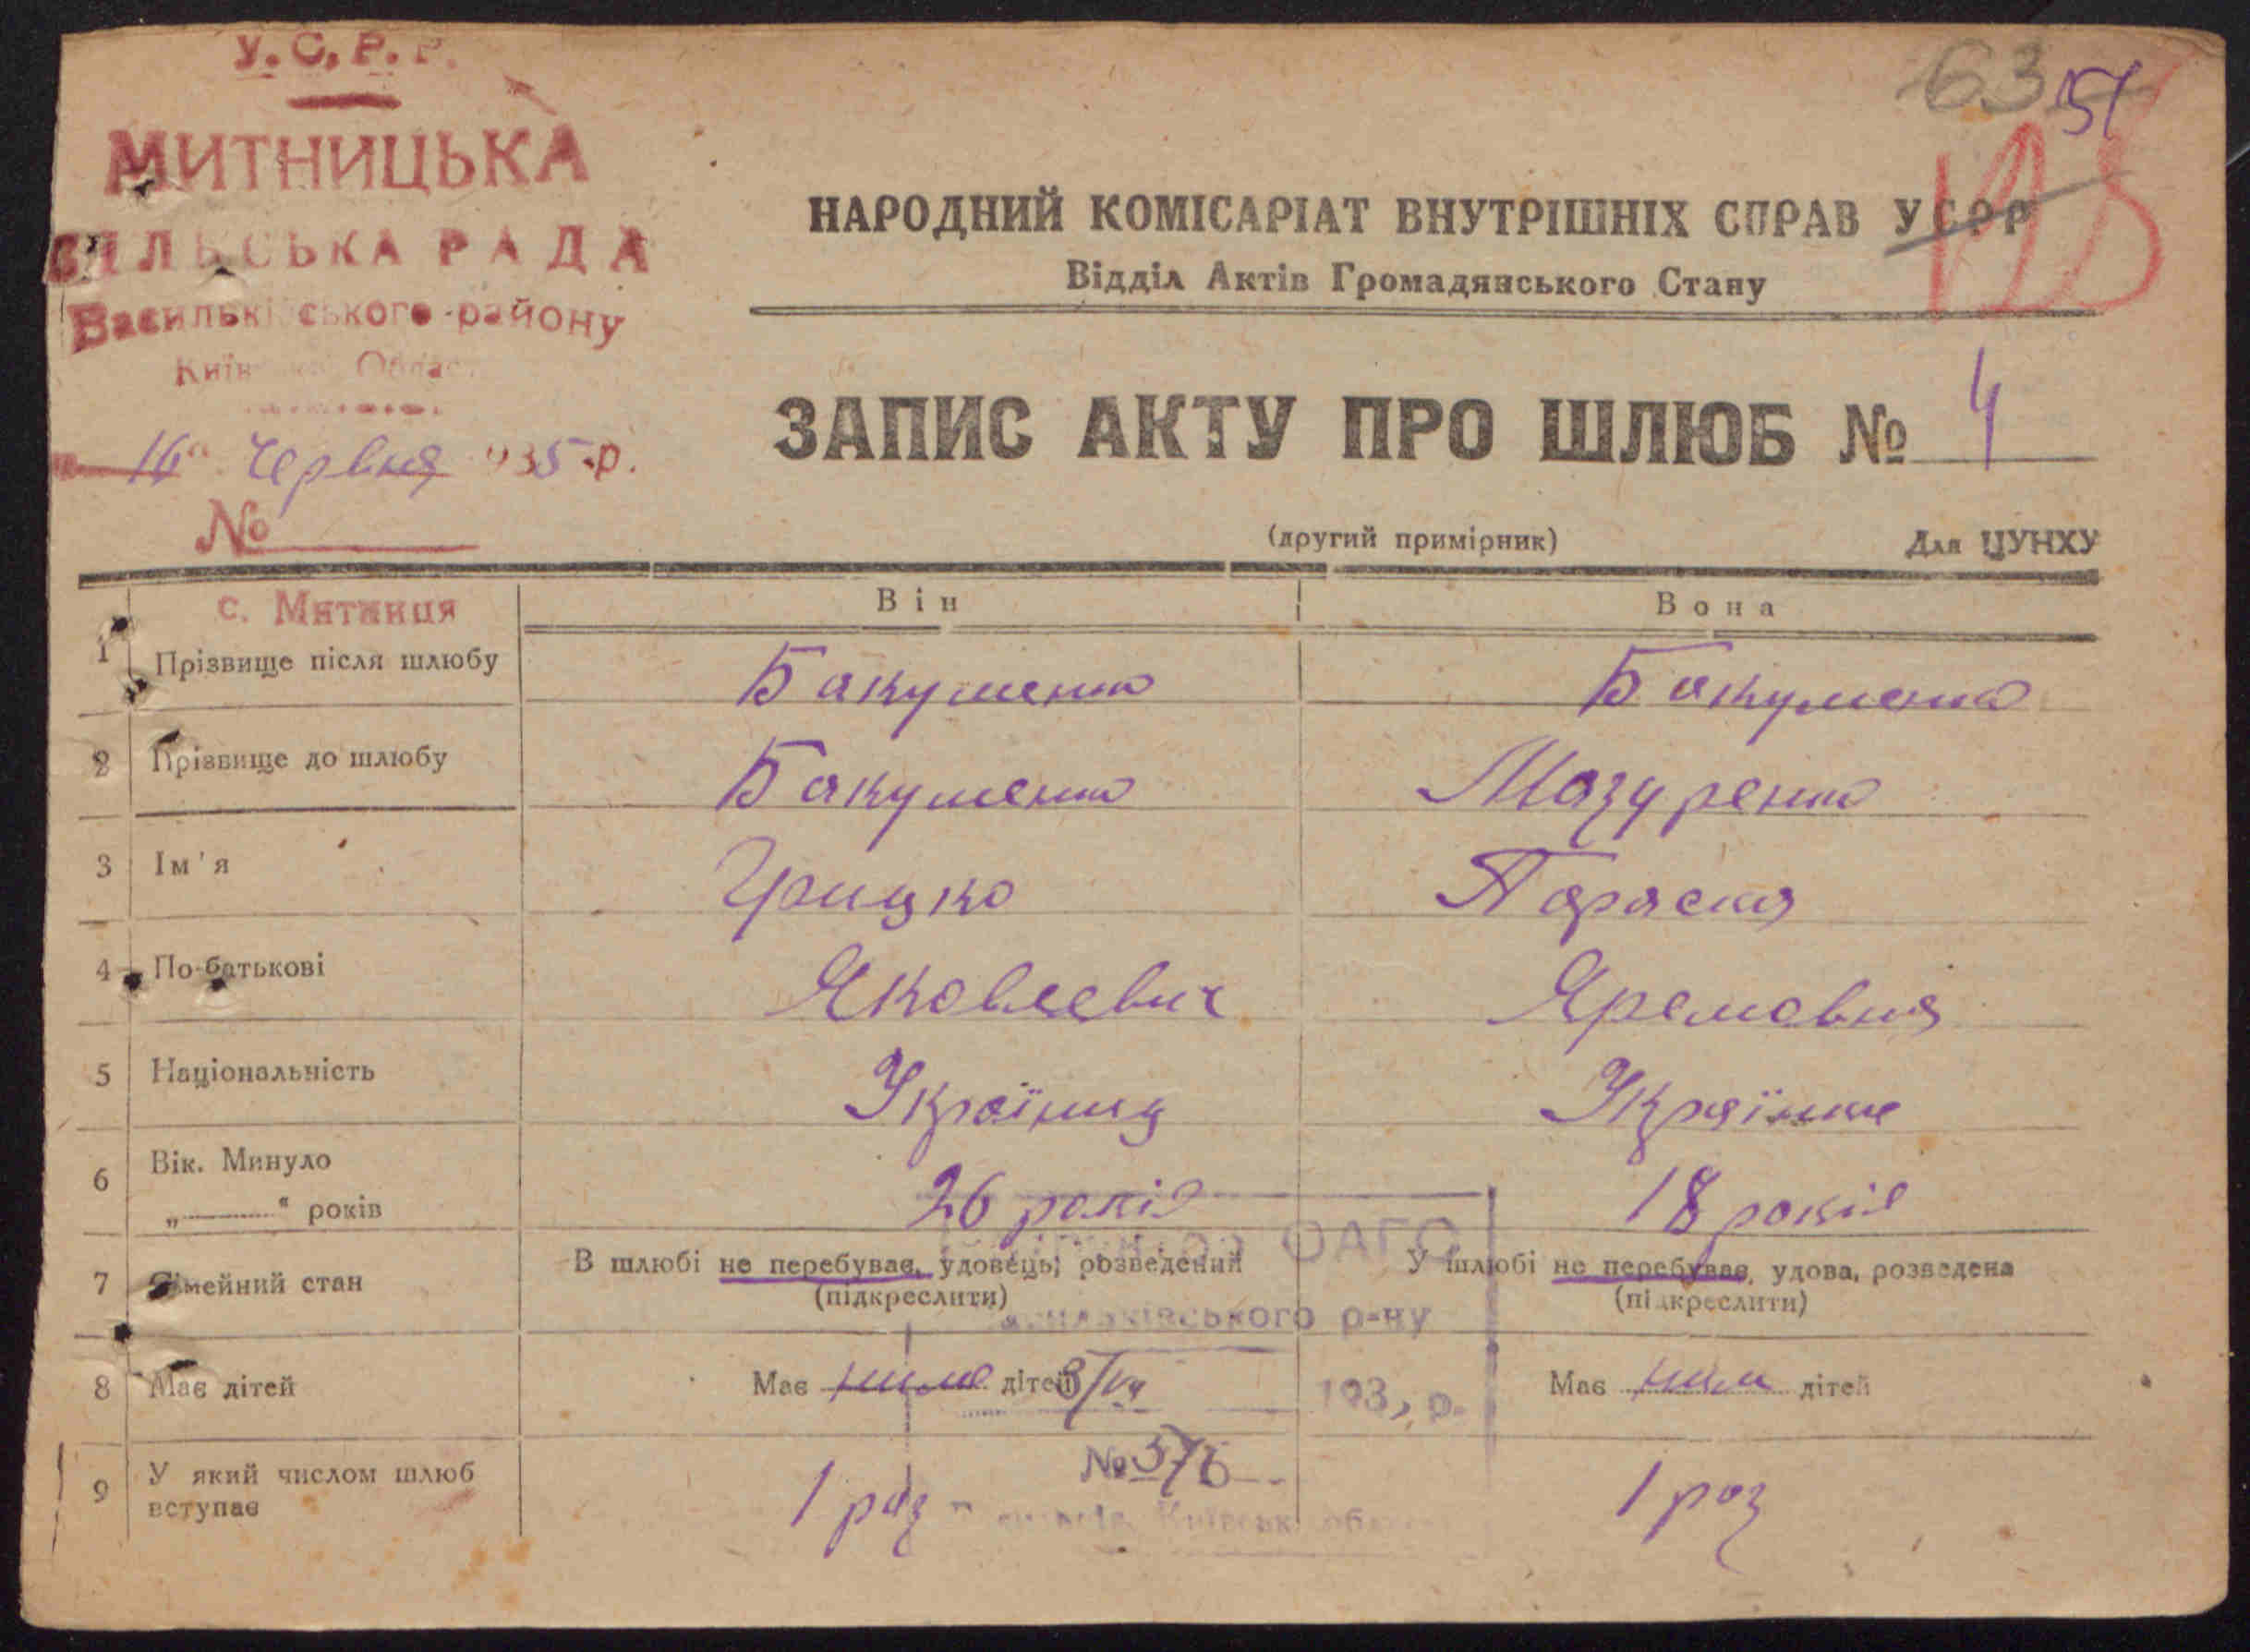 У.С.Р.Р.
МИТНИЦЬКА
СІЛЬСЬКА РАДА
Васильківського району
Київ Облас
16 червня 1935 р.
№
63 51
НАРОДНИЙ КОМІСАРІАТ ВНУТРІШНІХ СПРАВ УСРР
Відділ Актів Громадянського Стану
ЗАПИС АКТУ ПРО ШЛЮБ № 4
(другий примірник) Для ЦУНХУ
с. Митниця
Він Вона
1 Прізвище після шлюбу Бакуменко Бакуменко
2 Прізвище до шлюбу Бакуменко Мазуренко
3 Ім'я Грицко Параска
4 По-батькові Яковлевич Яремовна
5 Національність Українец Українка
6 Вік. Минуло
„ “ років 26 років 18 років
7 Сімейний стан В шлюбі не перебуває, удовець, розведений У шлюбі не перебуває, удова, розведена
(підкреслити) (підкреслити)
ФАГС
Васильківського р-ну
8 Має дітей Має нима дітей Має нима дітей
8/VII 193 р.
№ 376
9 У який числом шлюб
вступає 1 раз 1 раз